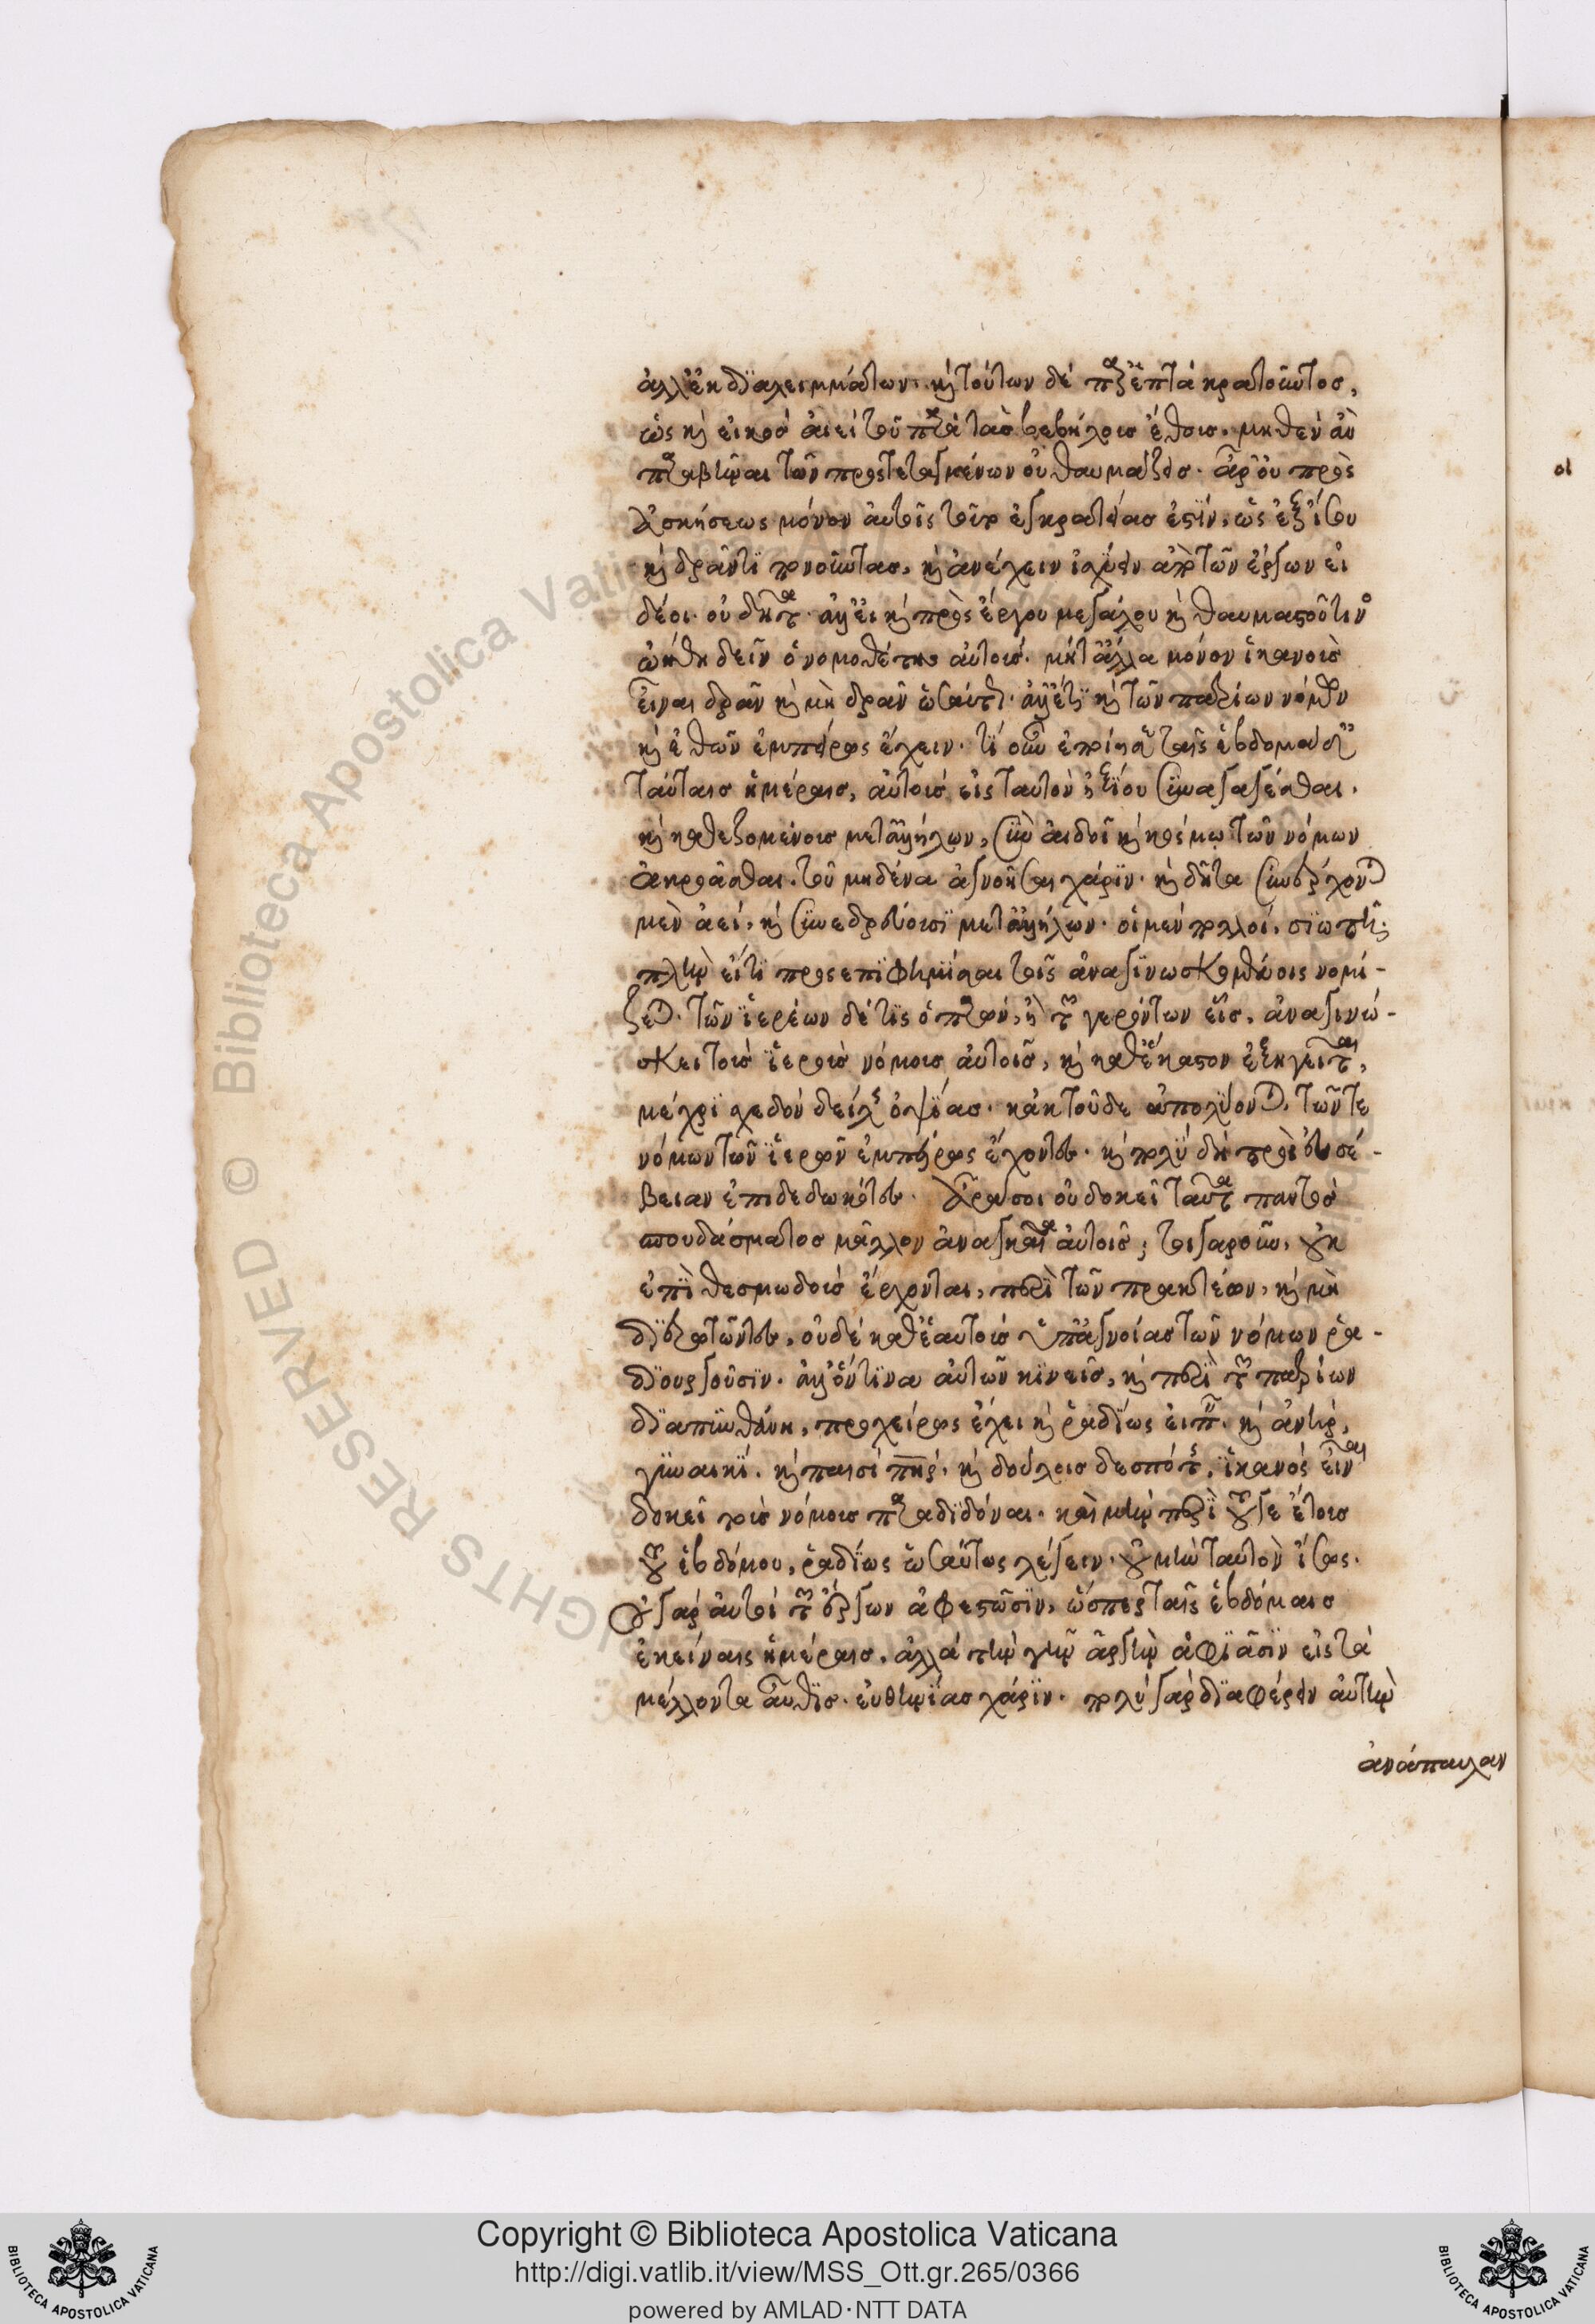 ἀλλ' ἐκ διαλειμμάτων. καὶ τούτων δὲ παρ' ἑπτὰ κρατοῦντος,
ὡς καὶ εἰκὸς ἀεὶ τοῦ παρὰ τὰς βεβήλοις ἔθους. μηθὲν ἂν
παραβῆναι τῶν προστεταγμένων οὐ θαυμάζεις. ἆρ' οὖν πρὸς
ἀσκήσεως μόνον αὐτοῖς τοῦτ' ἐγκρατείας ἐστίν, ὡς ἐξ ἴσου
καὶ δρᾶν τι πονοῦντας, καὶ ἀνέχειν ἰσχύειν ἀπὸ τῶν ἔργων εἰ
δέοι. οὐ δῆτα. ἀλλ' εἰ καὶ πρὸς ἔργου μεγάλου καὶ θαυμαστοῦ τινος
ᾠήθη δεῖν ὁ νομοθέτης αὐτοὺς. μὴ τἄλλα μόνον ἱκανοὺς
εἶναι δρᾶν καὶ μὴ δρᾶν ὡσαύτως. ἀλλ' ἔτι καὶ τῶν πατρίων νόμων
καὶ ἐθῶν ἐμπείρως ἔχειν. τί οὖν ἐποίησε ταῖς ἑβδομάσι
ταύταις ἡμέραις, αὐτοὺς εἰς ταυτὸν ἠξίου συνάγεσθαι.
καὶ καθεζομένους μετ' ἀλλήλων, σὺν αἰδοῖ καὶ κόσμῳ τῶν νόμων
ἀκροᾶσθαι. τοῦ μηδένα ἀγνοῆσαι χάριν. καὶ δῆτα συνέρχονται
μὲν ἀεί, καὶ συνεδρεύουσι μετ' ἀλλήλων. οἱ μὲν πολλοί, σιωπῇ.
πλὴν εἴ τι προσεπιφημίσαι τοῖς ἀναγινωσκομένοις νομί-
ζεται. τῶν ἱερέων δέ τις ὁ παρών, ἢ τῶν γερόντων εἷς, ἀναγινώ-
σκει τοὺς ἱεροὺς νόμους αὐτοῖς, καὶ καθ' ἕκαστον ἐξηγεῖται,
μέχρι σχεδὸν δείλης ὀψίας. κἀκ τοῦδε ἀπολύονται, τῶν τε
νόμων τῶν ἱερῶν ἐμπείρως ἔχοντες. καὶ πολὺ δὴ πρὸς εὐσέ-
βειαν ἐπιδεδωκότες. ἆρά σοι οὐ δοκεῖ ταῦτα παντὸς
σπουδάσματος μᾶλλον ἀναγκαῖα αὐτοῖς; τοιγαροῦν, οὐκ
ἐπὶ θεσμῳδοὺς ἔρχονται, περὶ τῶν πρακτέων, καὶ μὴ
διερωτῶντες, οὐδὲ καθ' ἑαυτοὺς ὑπ' ἀγνοίας τῶν νόμων ῥᾳ-
διουργοῦσιν. ἀλλ' ὅντινα αὐτῶν κινεῖς, καὶ περὶ τῶν πατρίων
διαπυνθάνῃ, προχείρως ἔχει καὶ ῥᾳδίως εἰπεῖν. καὶ ἀνὴρ,
γυναικί. καὶ παισὶ πατήρ. καὶ δούλοις δεσπότης, ἱκανὸς εἶναι
δοκεῖ τοὺς νόμους παραδιδόναι. καὶ μὴν περὶ τοῦ γε ἔτους
τοῦ ἑβδόμου, ῥᾳδίως ὡσαύτως λέγειν. οὐ μὴν ταυτὸν ἴσως.
οὐ γὰρ αὐτοὶ τῶν ἔργων ἀφεστῶσιν, ὥσπερ ταῖς ἑβδόμαις
ἐκείναις ἡμέραις. ἀλλὰ τὴν γῆν ἀργὴν ἀφιᾶσιν εἰς τὰ
μέλλοντα αὖθις. εὐθηνίας χάριν. πολὺ γὰρ διαφέρειν αὐτὴν
ἀνάπαυλαν
οι
Copyright © Biblioteca Apostolica Vaticana
http://digi.vatlib.it/view/MSS_Ott.gr.265/0366
powered by AMLAD·NTT DATA
BIBLIOTECA APOSTOLICA VATICANA
BIBLIOTECA APOSTOLICA VATICANA